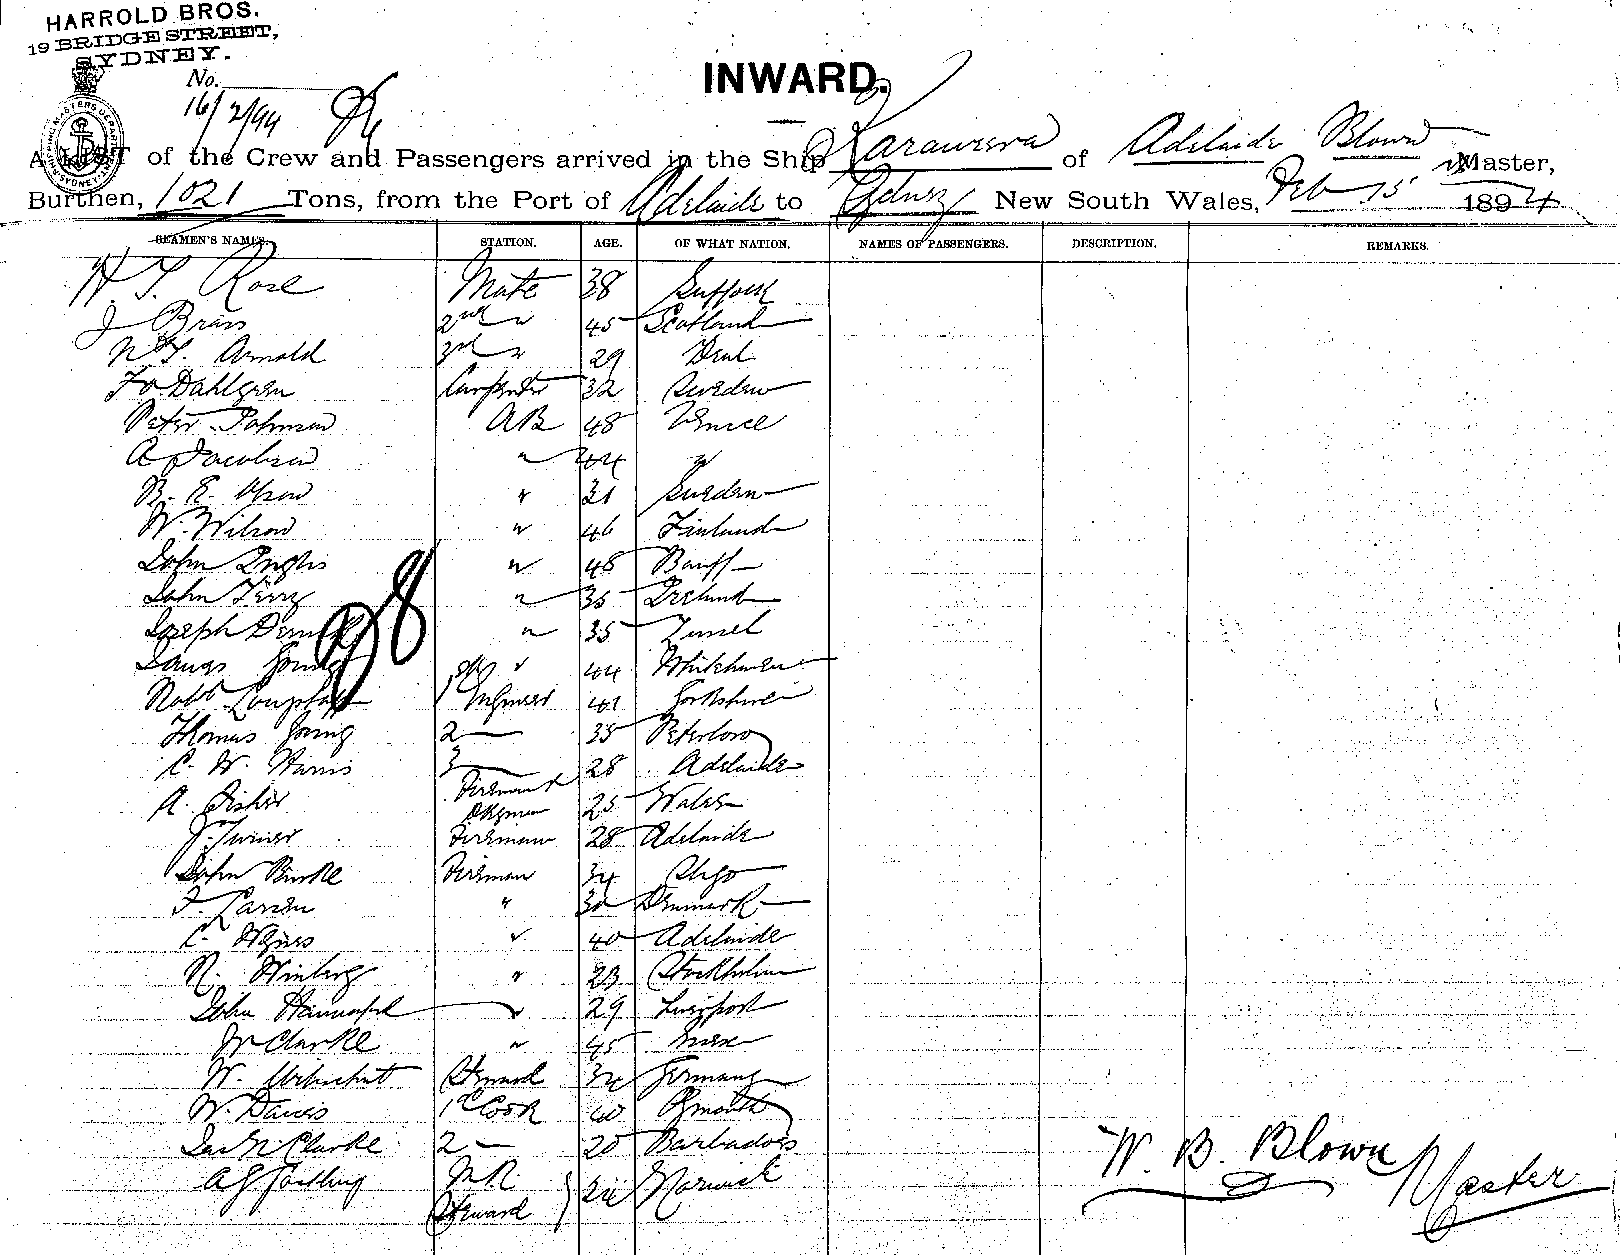 HARROLD BROS.
19 BRIDGE STREET,
SYDNEY.
No.
16/2/94
INWARD.
A LIST of the Crew and Passengers arrived in the Ship Karaweera of Adelaide Blown Master,
Burthen, 1021 Tons, from the Port of Adelaide to Sydney New South Wales, Feb 15 1894
SEAMEN'S NAMES. STATION. AGE. OF WHAT NATION. NAMES OF PASSENGERS. DESCRIPTION. REMARKS.
Rose Mate 38 Suffolk
J Brass 2nd " 45 Scotland
Arnold 3rd " 29 Deal
Dahlgren Carpenter 32 Sweden
Peter AB 48 Venice
A Jacobsen " 44 "
" 31 Sweden
W. Wilson " 46 Finland
John Inglis " 48 Banff
John Terry " 35 Ireland
Joseph " 35
James Young " 44 Whitehaven
Robt 1 Engineer 41 Yorkshire
Thomas Young 2 35
C. W. Harris 3 28 Adelaide
A. Fisher Fireman & 25 Wales
J. Turner Fireman 28 Adelaide
John Burke Fireman 34 Sligo
F. Larsen " 30 Denmark
C. " 40 Adelaide
R. Winberg " 23 Stockholm
John " 29 Liverpool
Clarke " 45
W. Steward 34 Germany
W. Davis 1st Cook 40 Plymouth
Clarke 2 20 Barbadoes
A G Steward 34
W. B. Blown Master